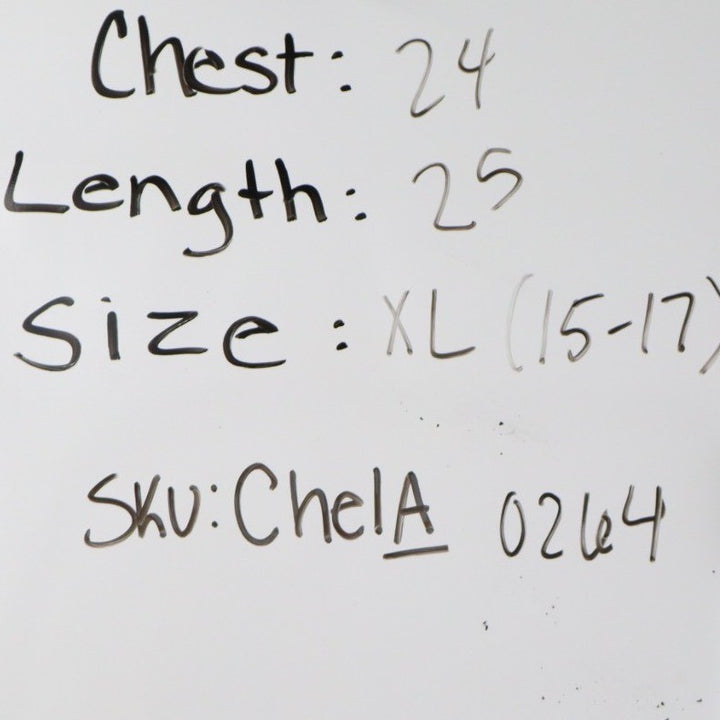 Chest: 24
Length: 25
Size: XL (15-17)
SKU: ChelA 0264